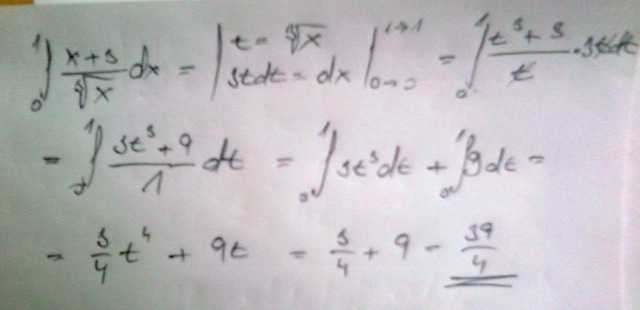 ₀∫¹ (x+3)/∛x dx = | t = ∛x 3tdt = dx |₀→₀ ¹→¹ = ₀∫¹ (t³+3)/t · 3tdt
= ₀∫¹ (3t³+9)/1 dt = ₀∫¹ 3t³dt + ₀∫¹ 9dt =
= 3/4 t⁴ + 9t = 3/4 + 9 = 39/4